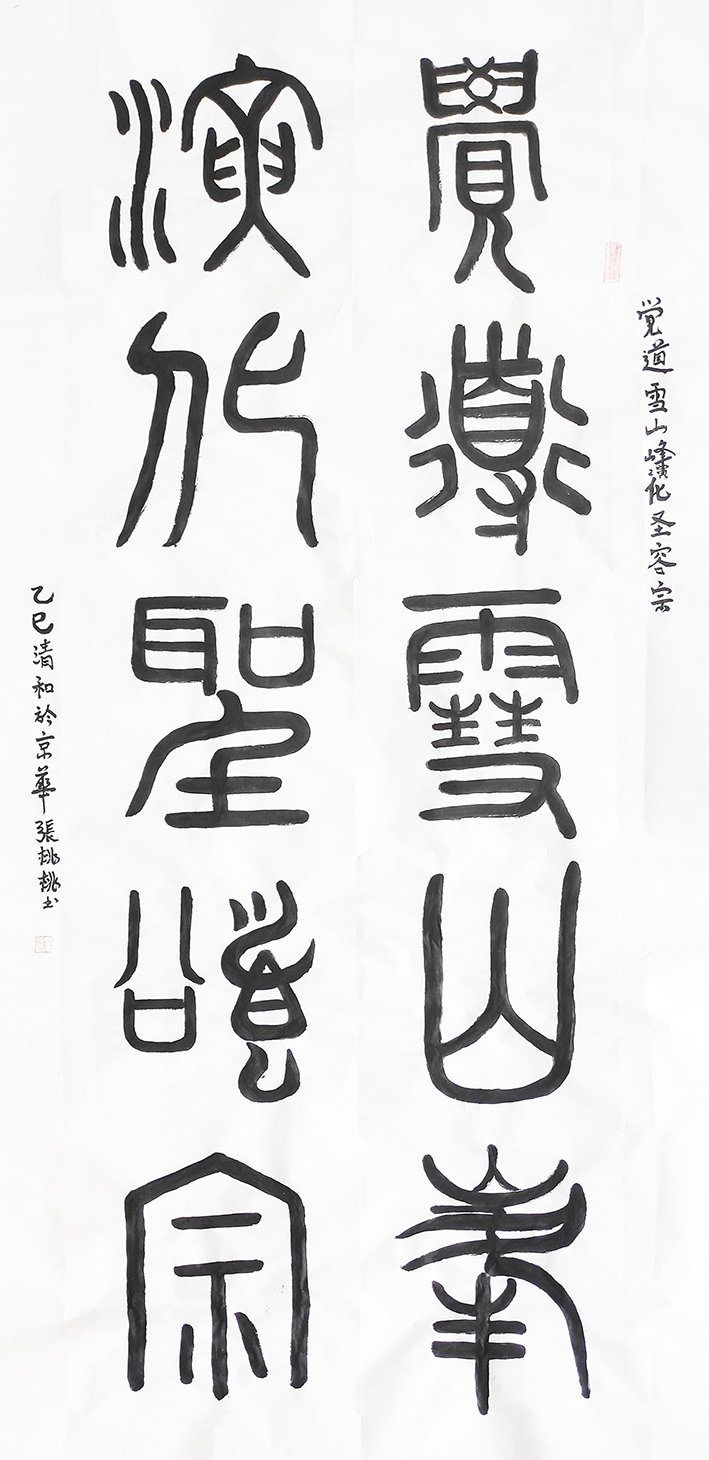 觉道雪山峰演化圣容宗
覺道雪山峯
演化聖頌宗
乙巳清和於京華張桃桃书